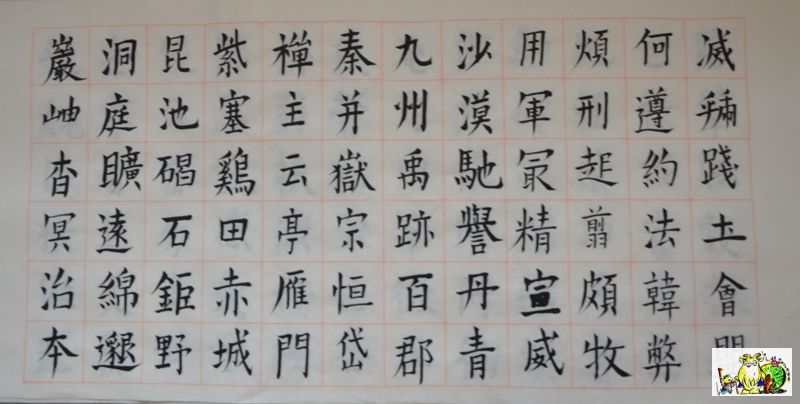 滅虢踐土會
何遵約法韓弊
煩刑起翦頗牧
用軍冣精宣威
沙漠馳譽丹青
九州禹跡百郡
秦并嶽宗恒岱
禪主云亭雁門
紫塞鷄田赤城
昆池碣石鉅野
洞庭矌遠綿邈
巖岫杳冥治本